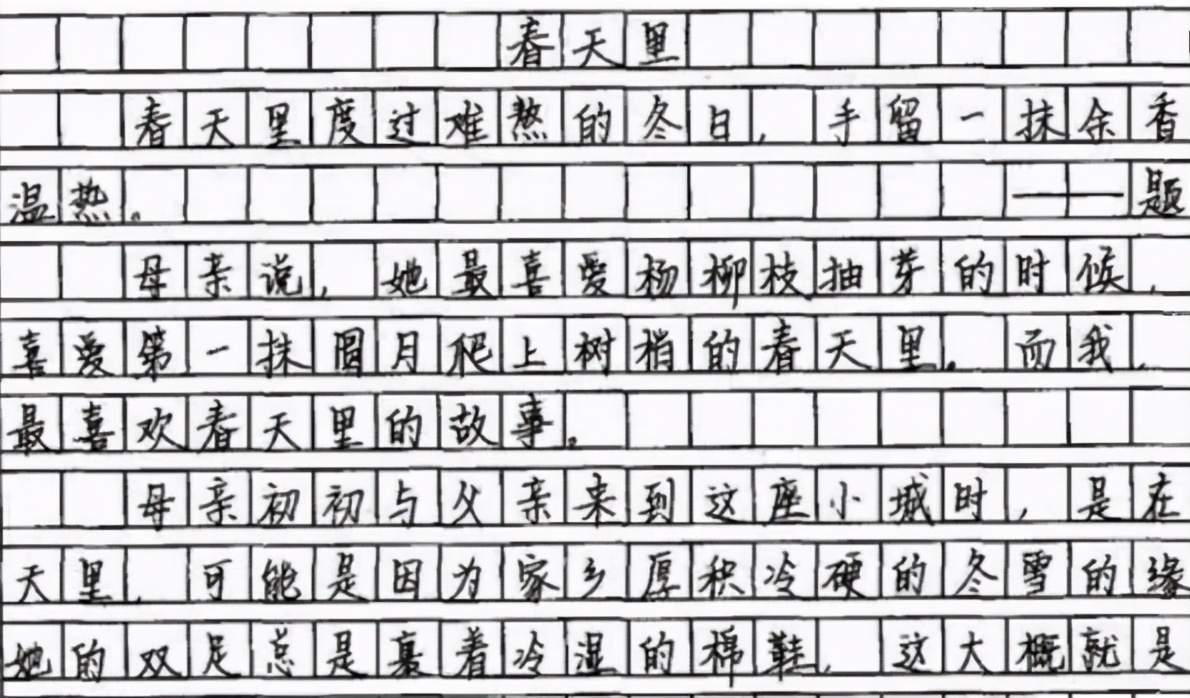 春天里
春天里度过难熬的冬日，手留一抹余香
温热。——题
母亲说，她最喜爱杨柳枝抽芽的时候，
喜爱第一抹圆月爬上树梢的春天里。而我，
最喜欢春天里的故事。
母亲初初与父亲来到这座小城时，是在
天里，可能是因为家乡厚积冷硬的冬雪的缘
她的双足总是裹着冷湿的棉鞋，这大概就是